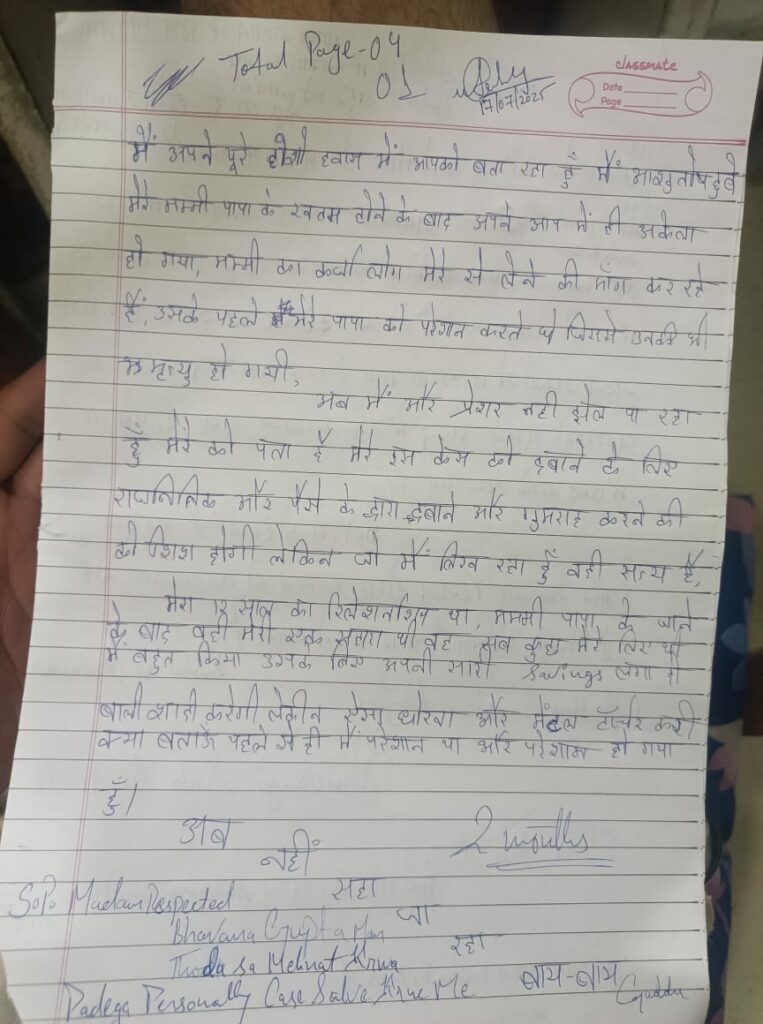 Total Page-04
01
17/07/2025
classmate
Date
Page
मैं अपने पूरे होशो हवास में आपको बता रहा हूँ मैं आशुतोष दुबे
मेरे मम्मी पापा के खतम होने के बाद अपने आप में ही अकेला
हो गया, मम्मी का कर्जा लोग मेरे से लेने की माँग कर रहे
हैं, उसके पहले मेरे पापा को परेशान करते थे जिससे उनकी भी
मृत्यु हो गयी,
अब मैं और प्रेशर नही झेल पा रहा
हूँ मेरे को पता है मेरे इस केस को दबाने के लिए
राजनितिक और पैसे के द्वारा दबाने और गुमराह करने की
कोशिश होगी लेकिन जो मैं लिख रहा हूँ वही सत्य है,
मेरा 12 साल का रिलेशनशिप था, मम्मी पापा के जाने
के बाद वही मेरी एक सहारा थी वह सब कुछ मेरे लिए थी
मैं बहुत किया उसके लिए अपनी सारी Savings लगा दी
बोली शादी करेगी लेकीन ऐसा धोखा और मेंटल टॉर्चर करी
क्या बताऊँ पहले से ही मैं परेशान था और परेशान हो गया
हूँ।
अब
2 months
नहीं
सहा
SoPo Madam Respected
जा
Bhavana Gupta Mam
रहा
Thoda sa Mehnat Krna
बाय-बाय
Padega Personally Case Solve Krne Me
Guddu